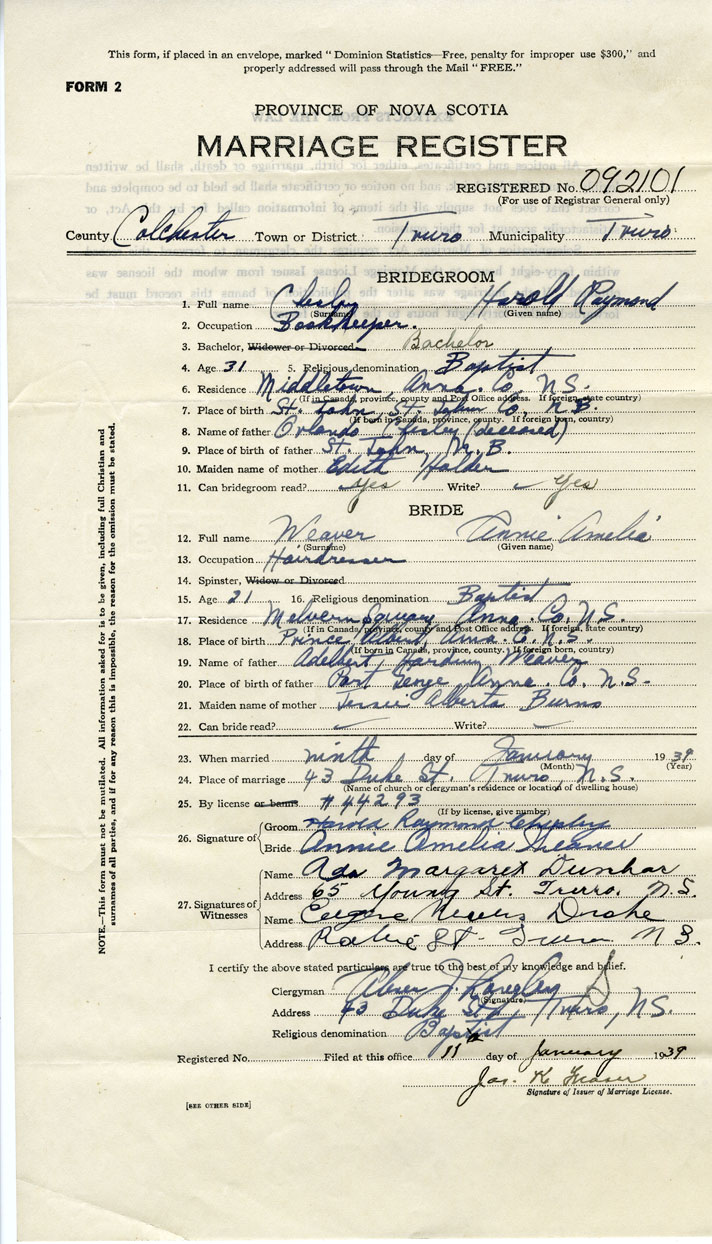 This form, if placed in an envelope, marked "Dominion Statistics—Free, penalty for improper use $300," and
properly addressed will pass through the Mail "FREE."
FORM 2
PROVINCE OF NOVA SCOTIA
MARRIAGE REGISTER
REGISTERED No. 092101
(For use of Registrar General only)
County Colchester Town or District Truro Municipality Truro
BRIDEGROOM
1. Full name Chesley Harold Raymond
(Surname) (Given name)
2. Occupation Bookkeeper.
3. Bachelor, Widower or Divorced Bachelor
4. Age 31 5. Religious denomination Baptist
6. Residence Middletown, Anna. Co, N.S.
(If in Canada, province, county and Post Office address. If foreign, state country)
7. Place of birth St. John, St. John Co, N.B.
(If born in Canada, province, county. If foreign born, country)
8. Name of father Orlando Chesley (deceased)
9. Place of birth of father St. John, N.B.
10. Maiden name of mother Edith Holder
11. Can bridegroom read? Yes Write? Yes
BRIDE
12. Full name Weaver Annie Amelia
(Surname) (Given name)
13. Occupation Hairdresser
14. Spinster, Widow or Divorced
15. Age 21 16. Religious denomination Baptist
17. Residence Melvern Square, Anna. Co. N.S.
(If in Canada, province, county and Post Office address. If foreign, state country)
18. Place of birth Prince Albert, Anna. Co. N.S.
(If born in Canada, province, county. If foreign born, country)
19. Name of father Adelbert Weaver
20. Place of birth of father Port George, Anna. Co. N.S.
21. Maiden name of mother Jessie Alberta Burns
22. Can bride read? Write?
23. When married ninth day of January 1939
(Month) (Year)
24. Place of marriage 43 Duke St. Truro, N.S.
(Name of church or clergyman's residence or location of dwelling house)
25. By license or banns #44293
(If by license, give number)
26. Signature of
Groom Harold Raymond Chesley
Bride Annie Amelia Weaver
27. Signatures of Witnesses
Name Ada Margaret Dunbar
Address 65 Young St. Truro. N.S.
Name Drake
Address Robie St. Truro N.S.
I certify the above stated particulars are true to the best of my knowledge and belief.
Clergyman
(Signature)
Address 43 Duke St., Truro, N.S.
Religious denomination Baptist
Registered No. Filed at this office 11 day of January 1939
Jas. K Fraser
Signature of Issuer of Marriage License.
[SEE OTHER SIDE]
NOTE.—This form must not be mutilated. All information asked for is to be given, including full Christian and
surnames of all parties, and if for any reason this is impossible, the reason for the omission must be stated.